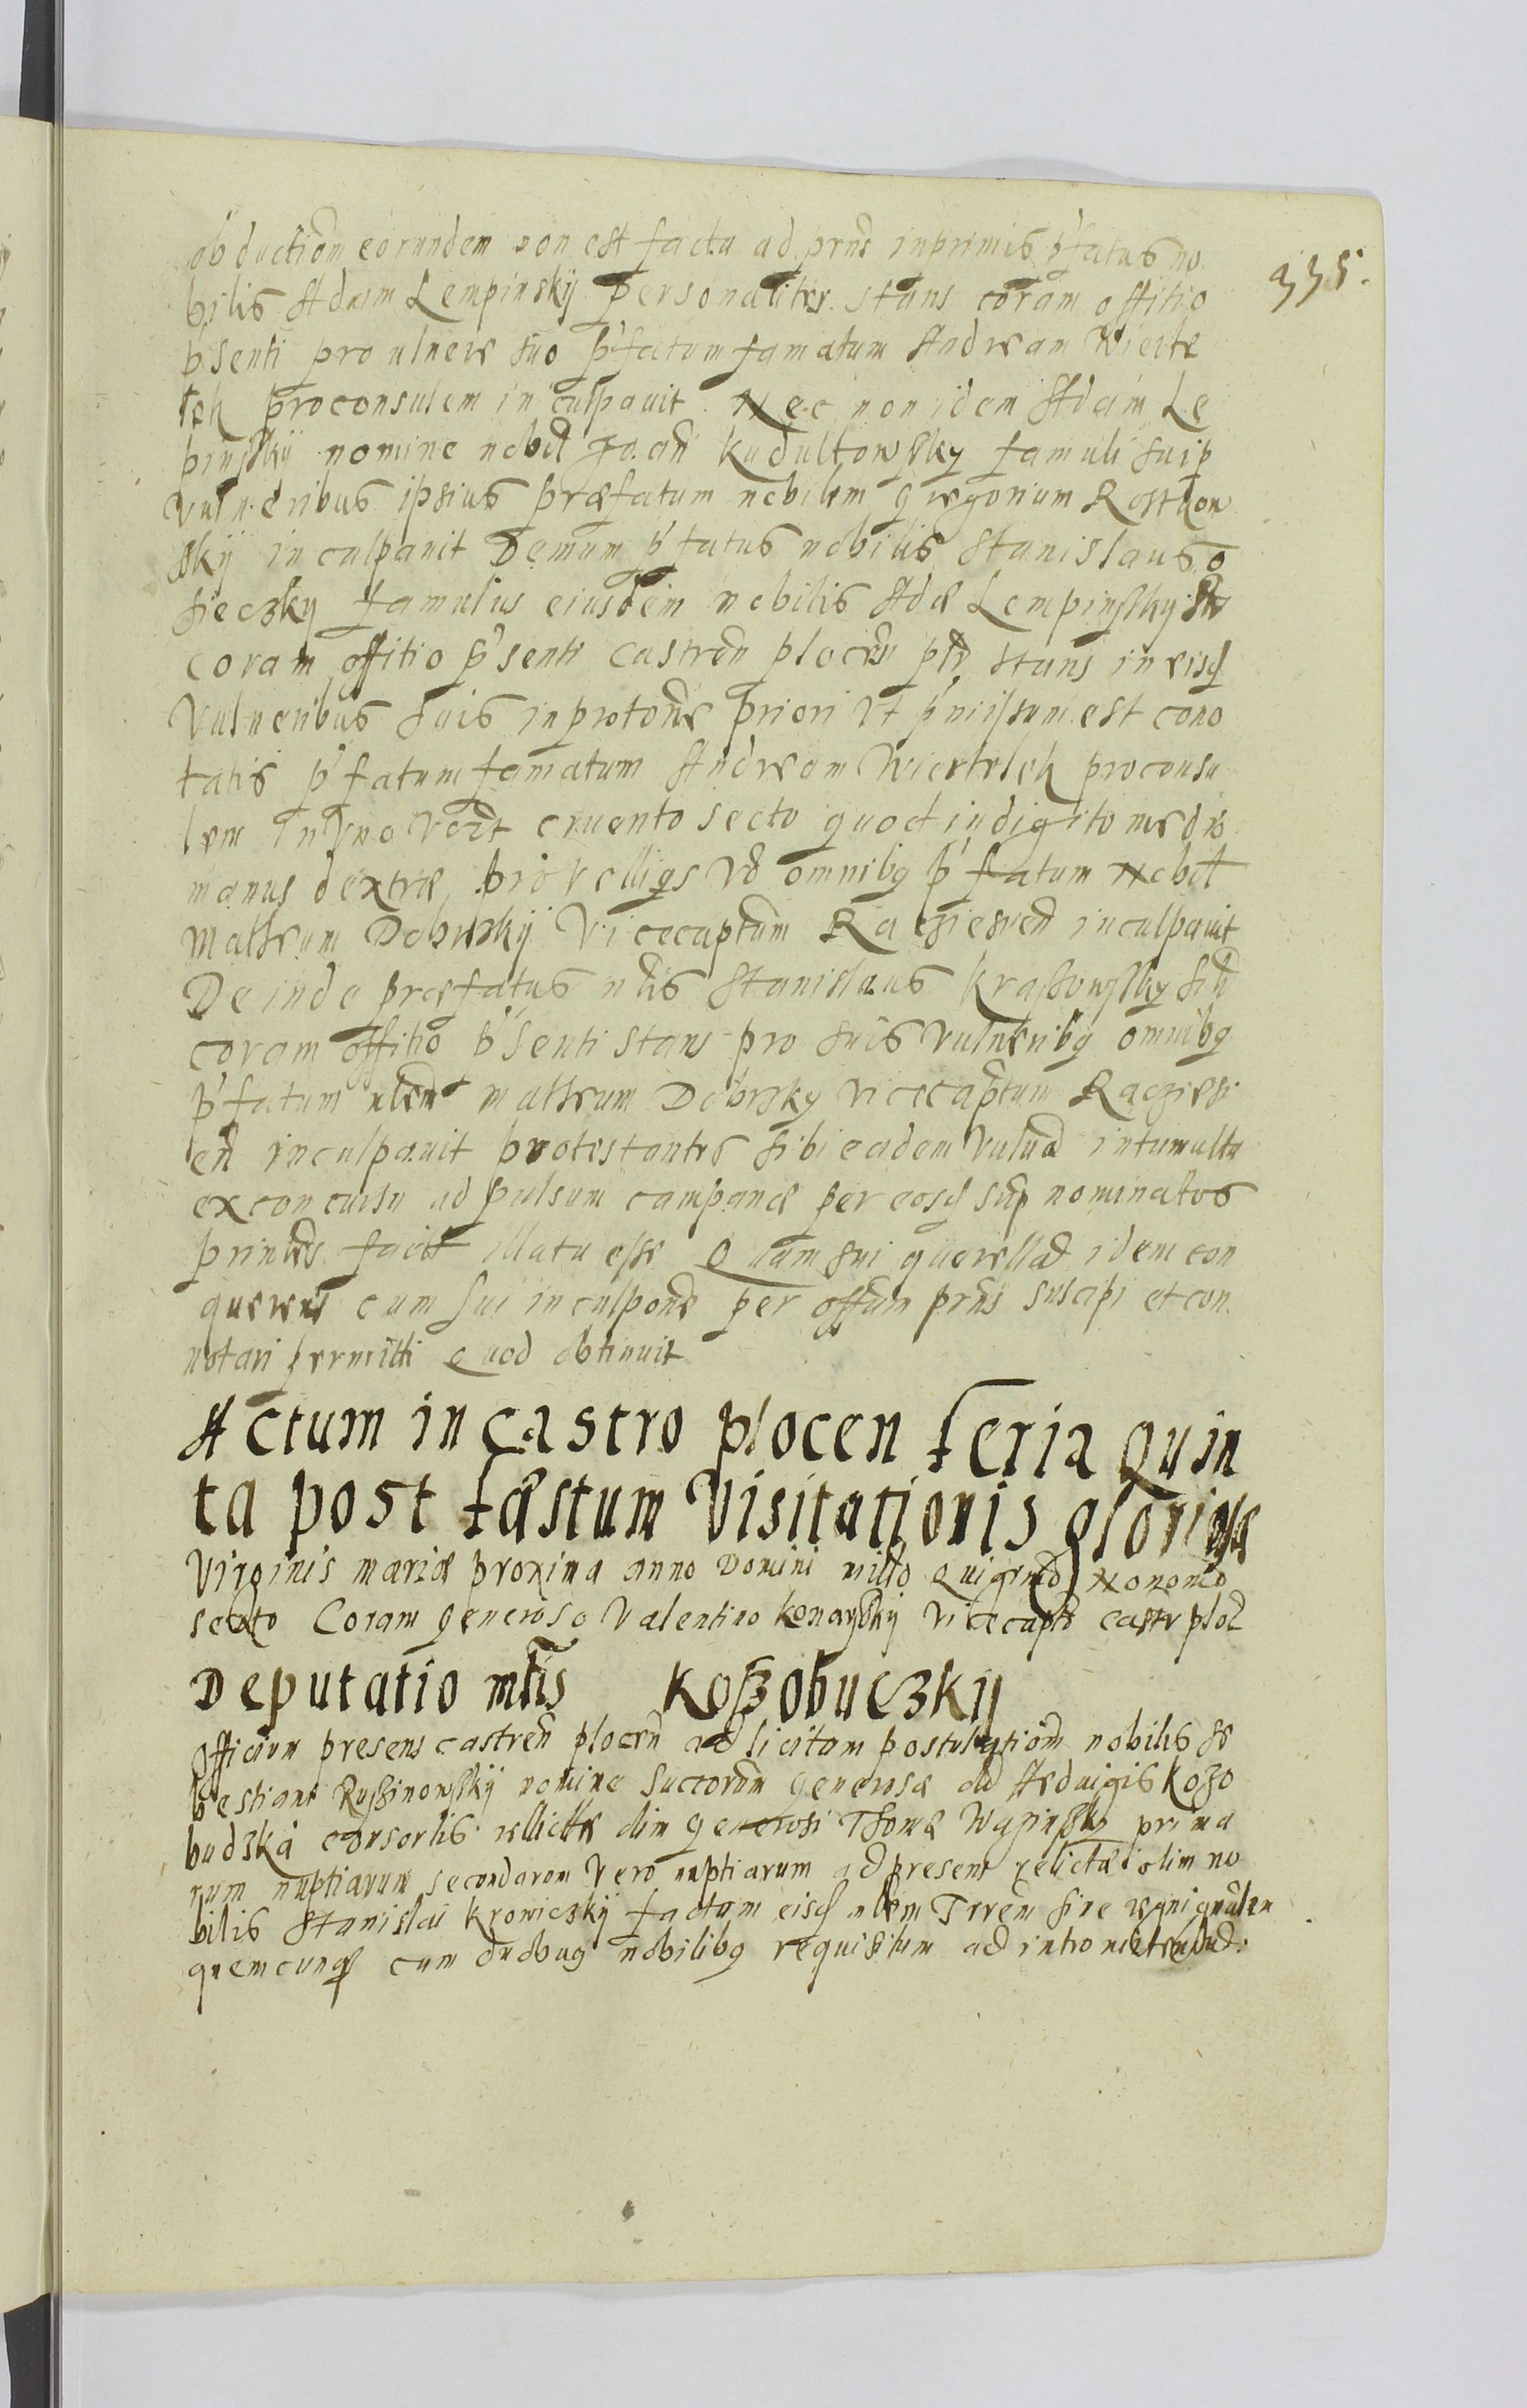 335.
obduction eorundem non est facta ad prns inprimis p'fatus no
bilis Adam Lempinskij personaliter stans coram offitio
p'senti pro ulnere suo p'fatum famatum Andream Wierte
lek proconsulem inculpauit Nec non idem Adam Le
pinskij nomine nobil Joan Kudultowsky famuli sui p
vulneribus ipsius præfatum nobilem gregorium Rostkow
skij inculpauit Demum p'fatus nobilis Stanislaus o
sieczky famulus eiusdem nobilis Adæ Lempinsky
coram offitio p'senti castren plocen ptr stans in eisd
vulneribus suis in protone priori vt p'missum est cono
tatis p'fatum famatum Andream Wiertelek proconsu
lem in vno vert cruento secto quod in digito medio
manus dextræ pro relliqs vo omnibq p'fatum Nobil
Matheum Dobrskij vicecaptum Racziesen inculpauit
Deinde præfatus nlis Stanislaus Krassowsky
coram offitio p'senti stans pro suis vulneribq omnibq
p'fatum nlem matheum Dobrsky vicecaptum Racziesi
en inculpauit protestantes sibi eadem vulna in tumultu
ex concursu ad pulsum campanæ per eosd sup nominatos
facit illata esse Quam sui querellam idem con
querens cum sui inculpone per offum prns suscipi et con
notari permitti quod obtinuit
Actum in castro plocen feria quin
ta post fæstum Visitationis gloriosæ
Virginis mariæ proxima anno Domini millo quigmo Nonomo
sexto Coram generoso Valentino Konarskij vicecapto castr ploc
Deputatio mlis Koszobuczkij
officium presens castren plocen ad licitam postulationem nobilis se
bestiani Russinowskij nomine succorum generosæ old Hedwigis Koszo
budzka consortis rellictæ olim generosi Thomæ Wapinsky prima
rum nuptiarum secondarom vero nuptiarum ad presens relictæ olim no
bilis Stanislai Krowiczkij factam eisd nlem Trrem siue regni gnalem
quemcunq cum duobus nobilibq requisitum ad intromittendud: